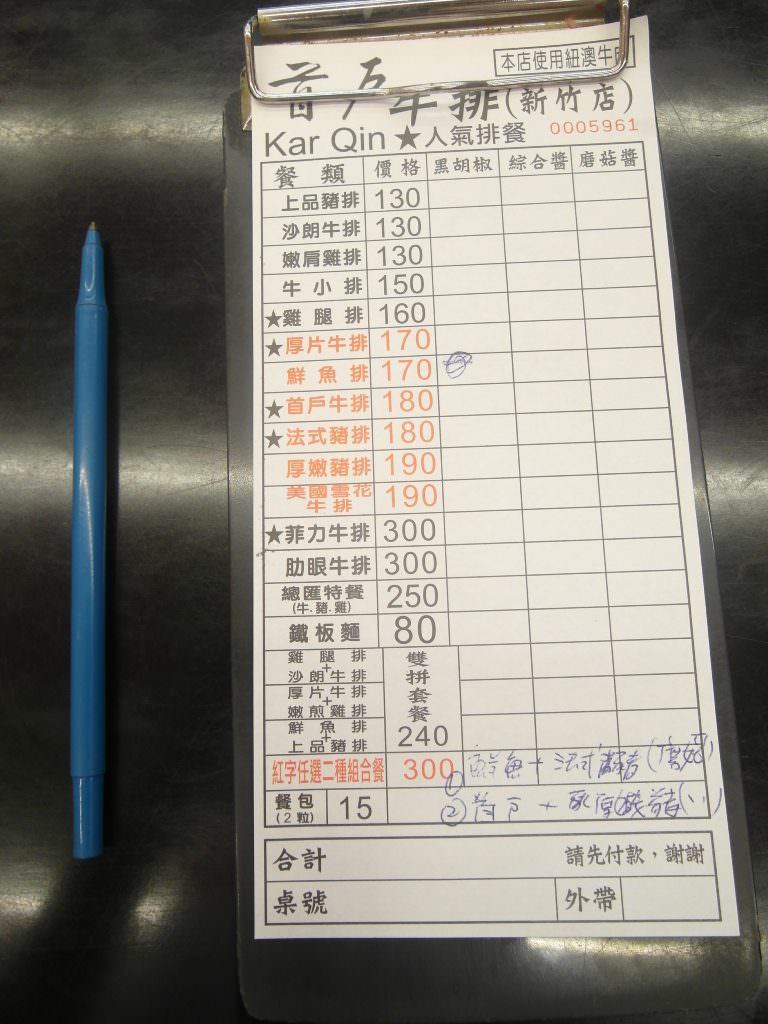 本店使用紐澳牛
首戶牛排(新竹店)
Kar Qin ★人氣排餐 0005961
餐類 價格 黑胡椒 綜合醬 磨菇醬
上品豬排 130
沙朗牛排 130
嫩肩雞排 130
牛小排 150
★雞腿排 160
★厚片牛排 170
鮮魚排 170
★首戶牛排 180
★法式豬排 180
厚嫩豬排 190
美國雪花牛排 190
★菲力牛排 300
肋眼牛排 300
總匯特餐 250
(牛.豬.雞)
鐵板麵 80
雞腿排
+
沙朗牛排
厚片牛排
+
嫩煎雞排
鮮魚排
+
上品豬排
雙拼套餐
240
紅字任選二種組合餐 300
① 魚 + 法式豬 (磨菇)
② 首戶 + 厚嫩豬 (〃)
餐包 15
(2粒)
合計 請先付款，謝謝
桌號 外帶